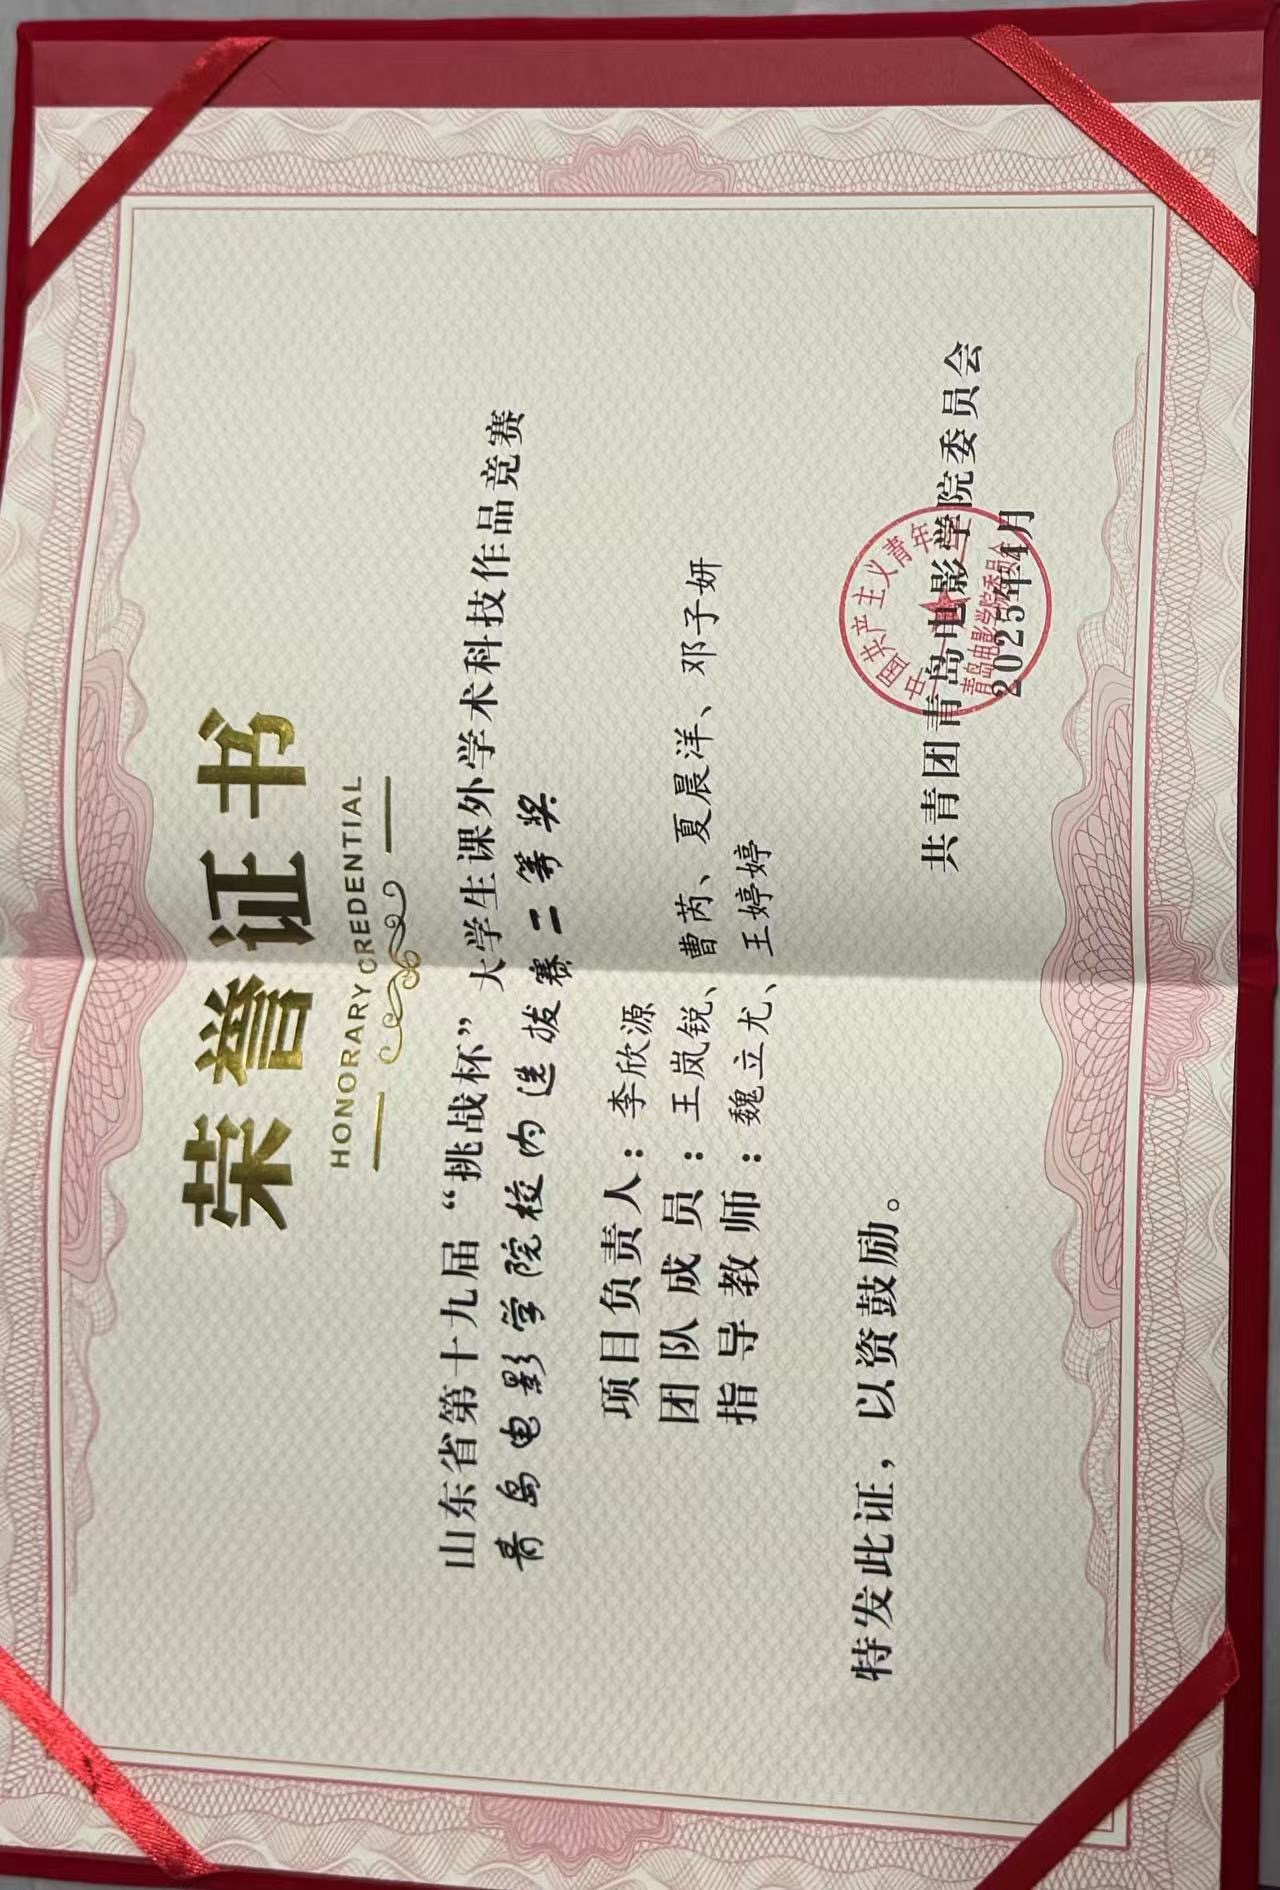 荣誉证书
HONORARY CREDENTIAL
山东省第十九届“挑战杯”大学生课外学术科技作品竞赛
青岛电影学院校内选拔赛二等奖
项目负责人：李欣源
团队成员：王岚锐、曹芮、夏晨洋、邓子妍
指导教师：魏立尤、王婷婷
特发此证，以资鼓励。
共青团青岛电影学院委员会
2025年4月
中国共产主义青年团
青岛电影学院委员会